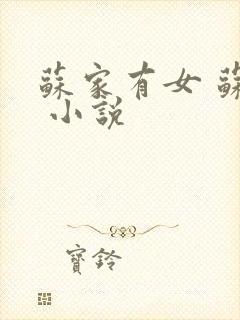 蘇家有女 蘇
小說
寶鈴